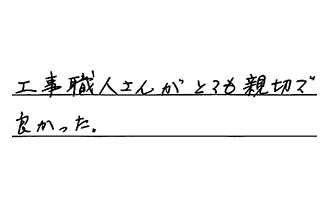 工事職人さんがとても親切で
良かった。